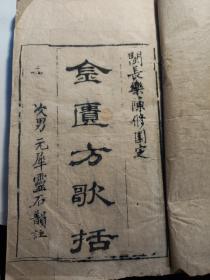 閩長樂陳修園定
金匱方歌括
次男元犀靈石韻註